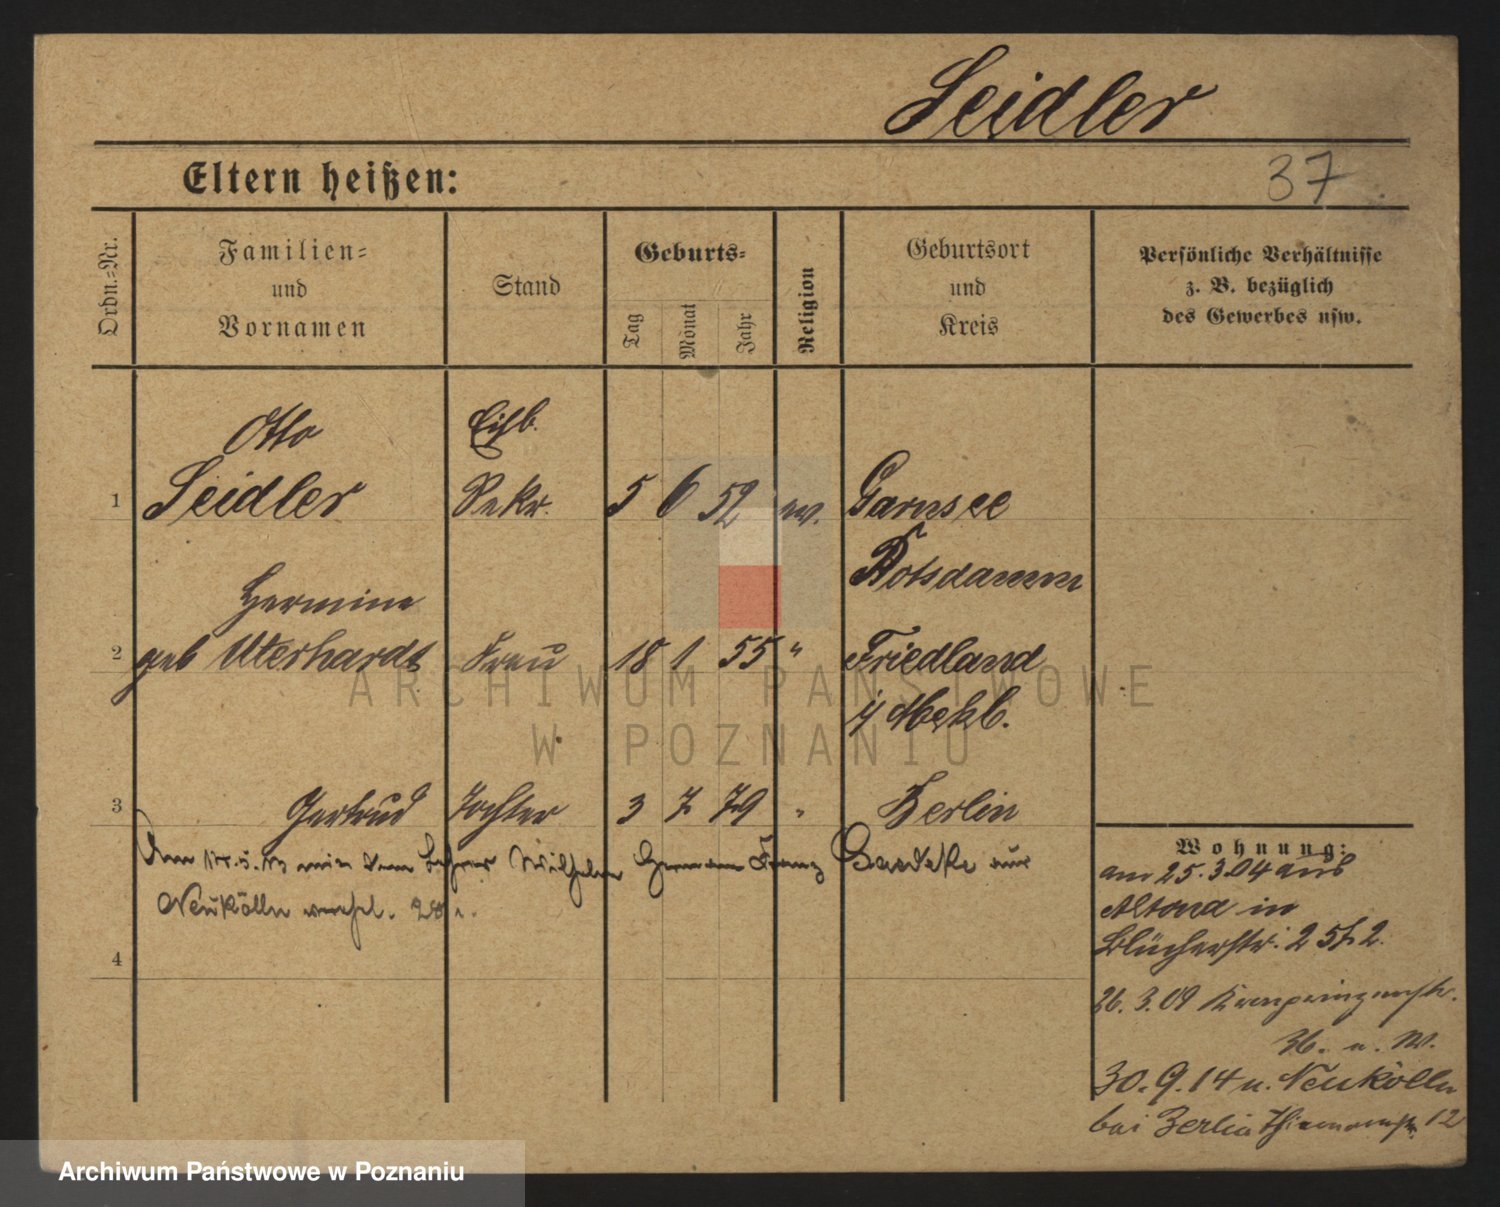 Seidler
Eltern heißen:
37
Ordn.-Nr.
Familien-
und
Vornamen
Stand
Geburts-
Tag
Monat
Jahr
Religion
Geburtsort
und
Kreis
Persönliche Verhältnisse
z. B. bezüglich
des Gewerbes usw.
Otto Eisb.
1 Seidler Sekr. 5 6 52 ev. Garnsee
Potsdamm
Hermine
2 geb Uterhardt Frau 18 1 55 " Friedland
i/ Meckb.
3 Gertrud Tochter 3 7 79 " Berlin
Am mit dem Lehrer Wilhelm Hermann Franz aus
Neukölln verehel.
4
Wohnung:
am 25.3.04 aus
Altona in
Blücherstr. 2 St. 2.
26.3.09 Kronprinzenstr.
36. n. W.
30.9.14 n. Neukölln
bei Berlin Thiemannstr. 12
ARCHIWUM PAŃSTWOWE
W POZNANIU
Archiwum Państwowe w Poznaniu